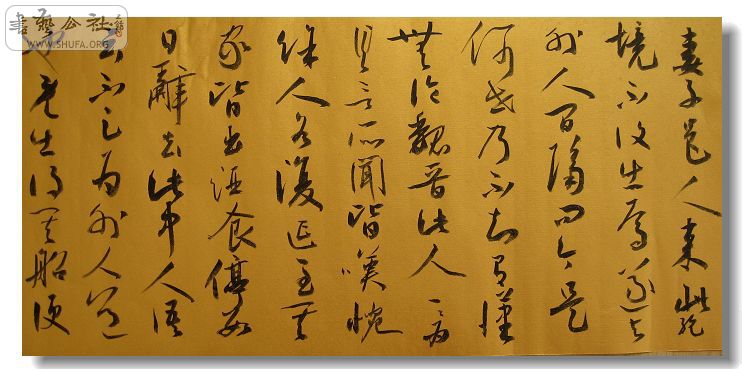 妻子邑人來此絕
境不復出焉遂與
外人間隔問今是
何世乃不知有漢
無論魏晉此人一一為
具言所聞皆嘆惋
餘人各復延至其
家皆出酒食停數
日辭去此中人語
云不足為外人道
也既出得其船便
書藝公社
WWW.SHUFA.ORG